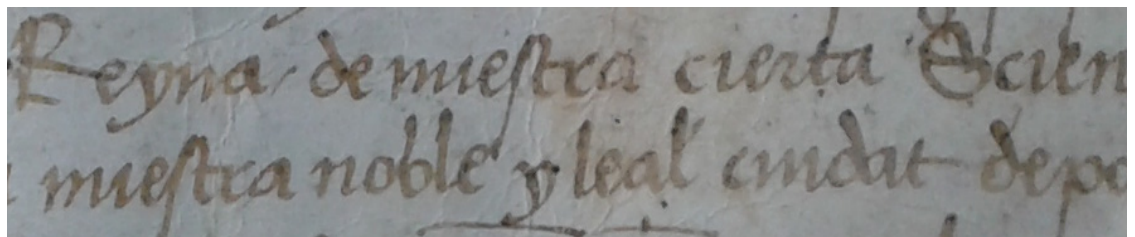 Reyna de nuestra cierta Scien
nuestra noble y leal ciudat de po